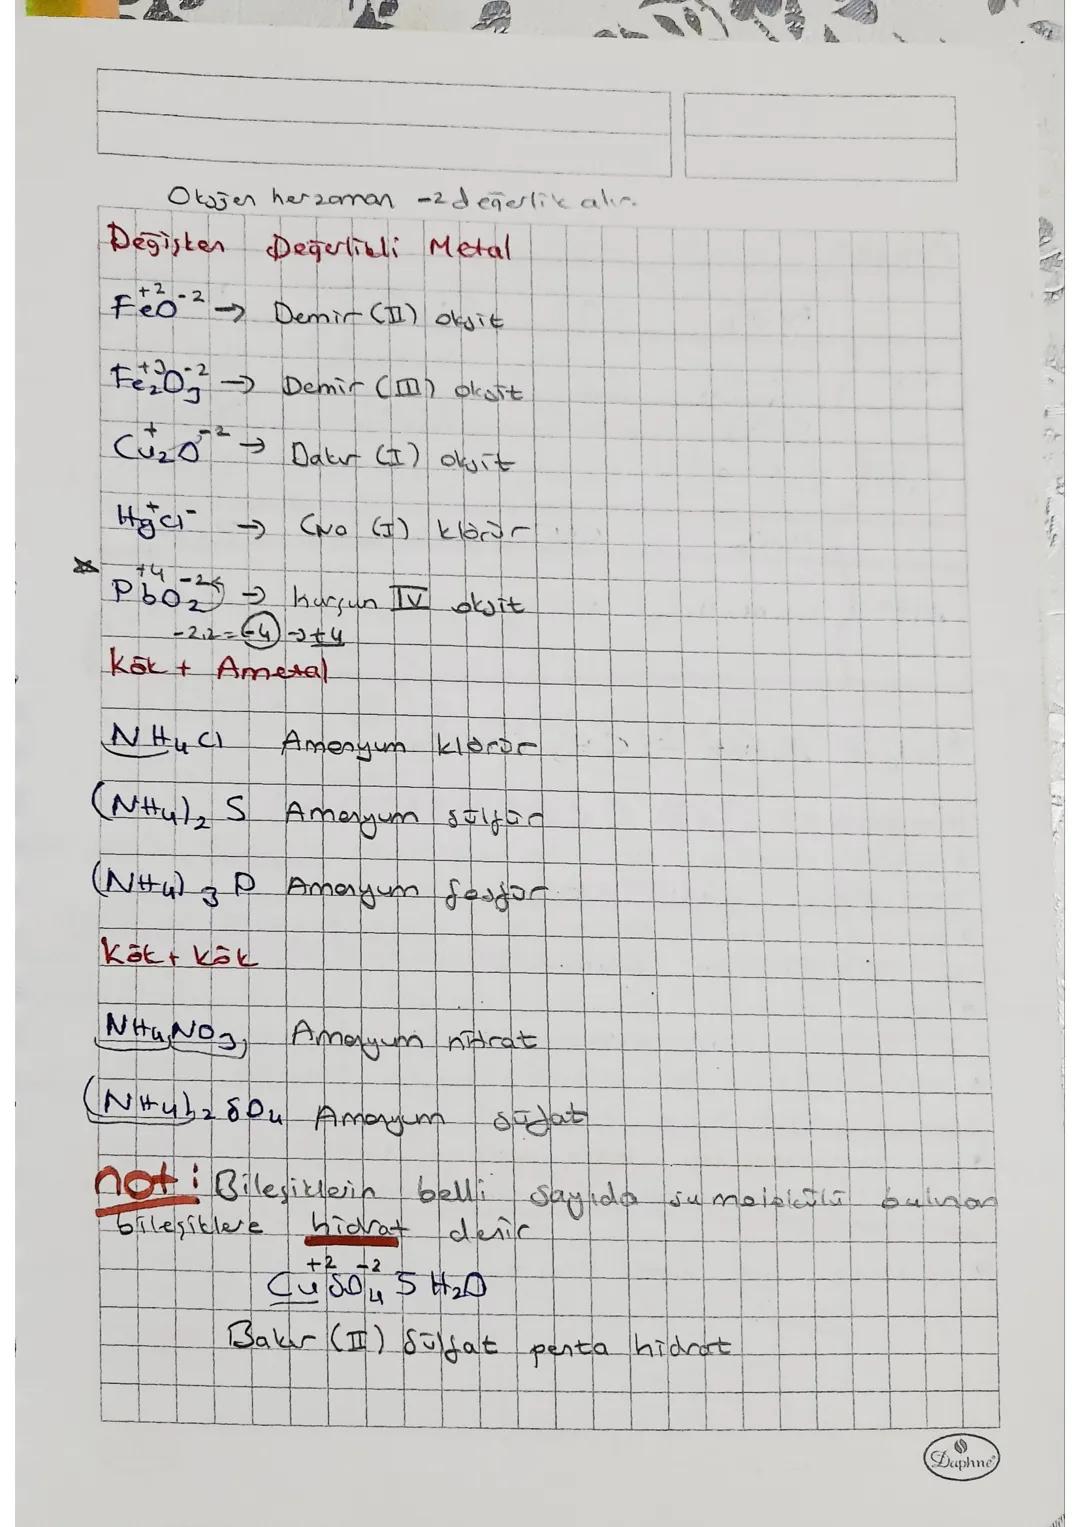 Oksijen herzaman -2 değerlik alır.
Değişken Değerlikli Metal
Fe⁺²O⁻² → Demir (II) oksit
Fe₂⁺³O₃⁻² → Demir (III) oksit
Cu₂⁺O⁻² → Bakır (I) oksit
Hg⁺Cl⁻ → Cıva (I) klorür
Pb⁺⁴O₂⁻² → kurşun IV oksit
-2.2 = -4 → +4
Kök + Ametal
NH₄Cl Amonyum klorür
(NH₄)₂ S Amonyum sülfür
(NH₄)₃ P Amonyum fosfor
Kök + Kök
NH₄NO₃ Amonyum nitrat
(NH₄)₂ SO₄ Amonyum sülfat
not: Bileşiklerin belli sayıda su molekülü bulunan
bileşiklere hidrat denir
Cu⁺²SO₄⁻² 5 H₂O
Bakır (II) sülfat penta hidrat
Daphne